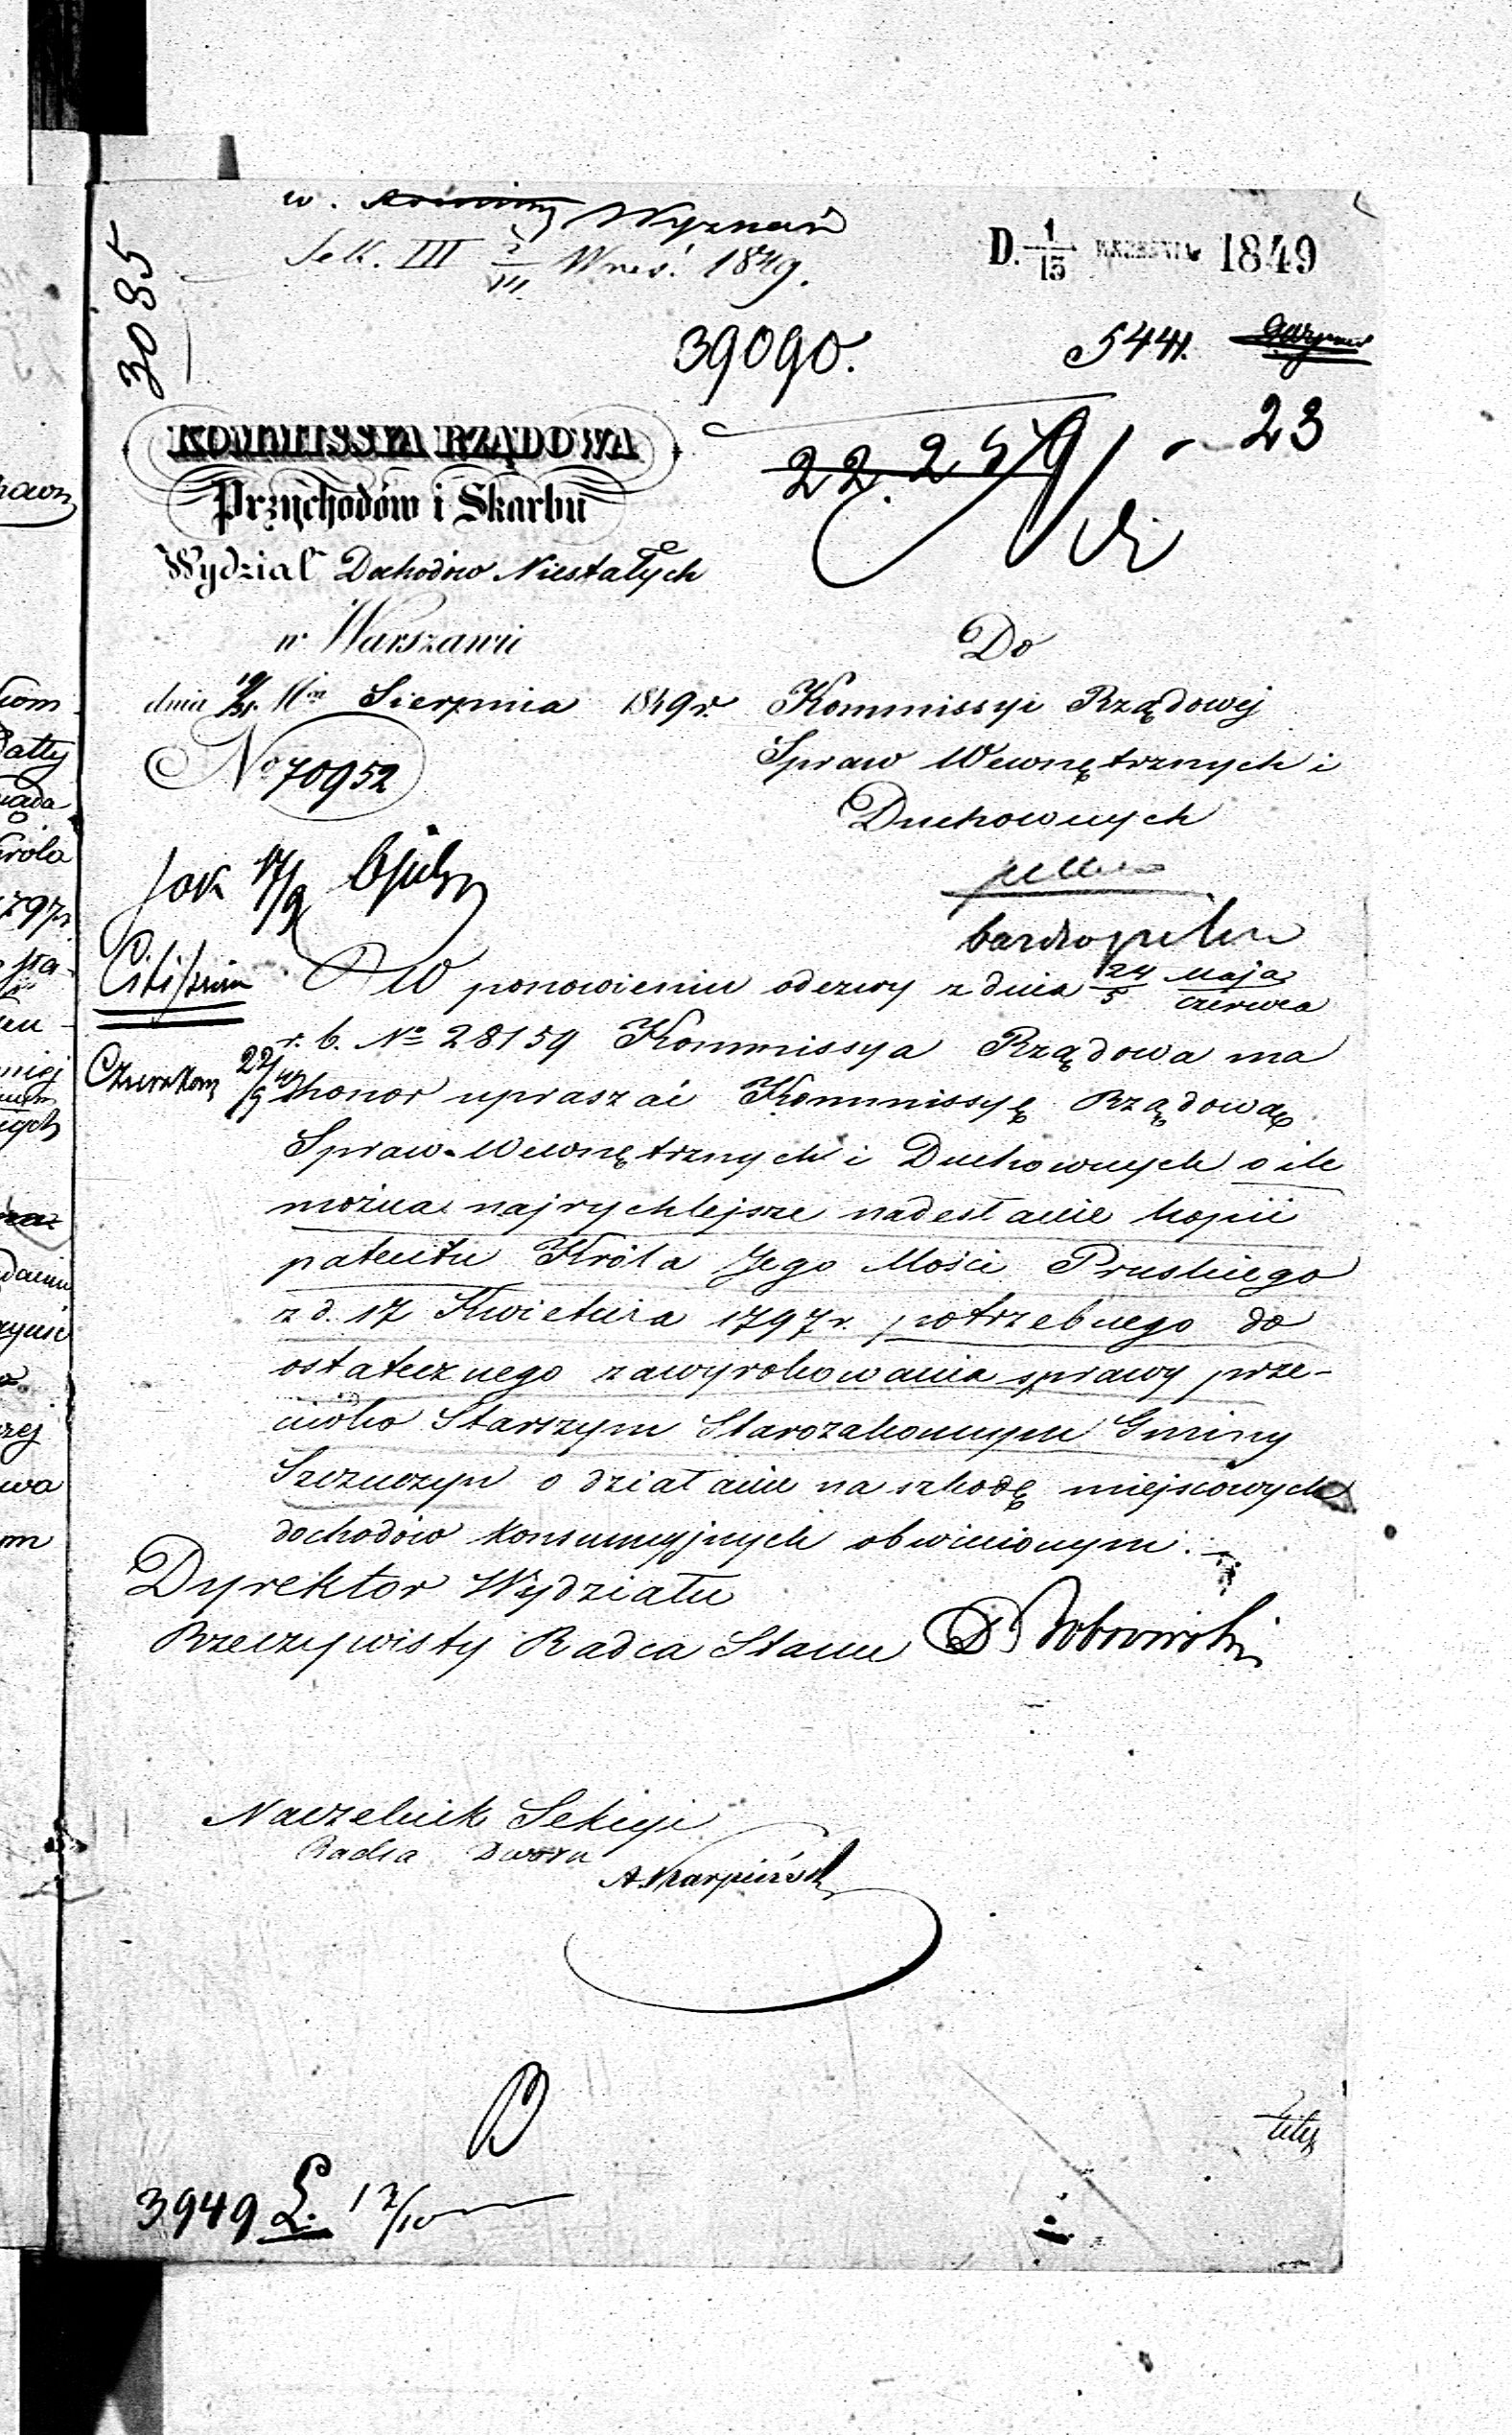 w. Wyznań
Sek. III Wrześ. 1849.
D. 1/13 WRZEŚNIA 1849
3085
39090.
5441.
23
22.259
KOMMISSYA RZĄDOWA
Przychodów i Skarbu
Wydział Dochodów Niestałych
w Warszawie
dnia Sierpnia 1849 r.
No 70952
Do
Kommissyi Rządowej
Spraw Wewnętrznych i
Duchownych
pilno
bardzo pilno
17/9
Citissime
W ponowieniu odezwy z dnia 24/5 Maja/Czerwca
r. b. No 28159 Kommissya Rządowa ma
22/9
honor upraszać Kommissyę Rządową
Spraw Wewnętrznych i Duchownych o ile
można najrychlejsze nadesłanie kopii
patentu Króla Jego Mości Pruskiego
z d. 17 Kwietnia 1797 r. potrzebnego do
ostatecznego zawyrokowania sprawy prze-
ciwko Starszym Starozakonnym Gminy
Szczuczyn o działanie na szkodę miejscowych
dochodów konsumcyjnych obwinionym.
Dyrektor Wydziału
Rzeczywisty Radca Stanu
Naczelnik Sekcyi
Radca Dworu
A. Karpiński
3949 12/10